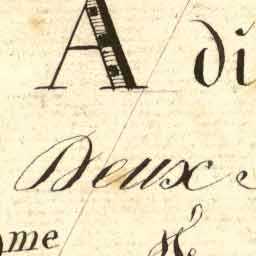 A di
Deux
me